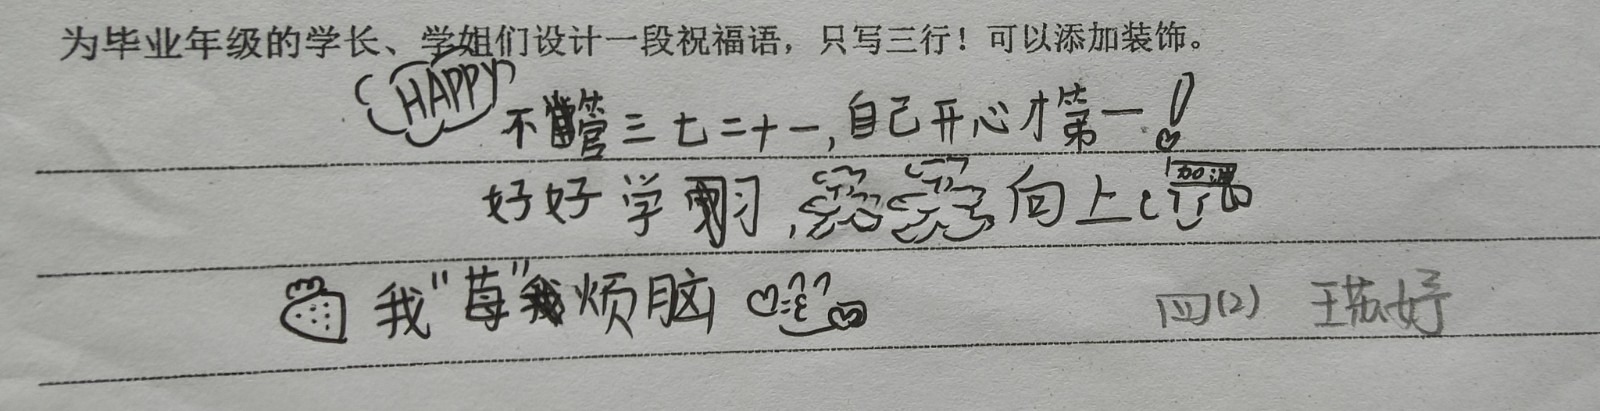 为毕业年级的学长、学姐们设计一段祝福语，只写三行！可以添加装饰。
HAPPY 不管三七二十一，自己开心才第一！
好好学习，向上 加油
我“莓”烦脑
四(2) 王